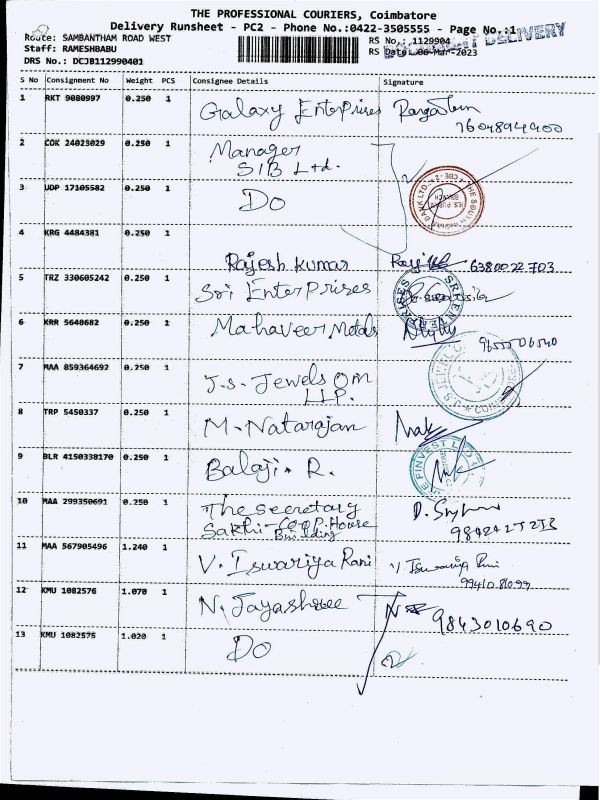 THE PROFESSIONAL COURIERS, Coimbatore
Delivery Runsheet - PC2 - Phone No.:0422-3505555 - Page No.:1
Route: SAMBANTHAM ROAD WEST
RS No.: 1129904
DELIVERY
Staff: RAMESHBABU
RS Date: 06-Mar-2023
DRS No.: DCJB112990401
S No Consignment No Weight PCS Consignee Details Signature
1 RKT 9080997 0.250 1 Galaxy Enterprises
2 COK 24023029 0.250 1 Manager
SIB Ltd.
3 UDP 17105582 0.250 1 Do
4 KRG 4484381 0.250 1 Rajesh Kumar 6380022703
5 TRZ 330605242 0.250 1 Sri Enterprises
6 KRR 5648682 0.250 1 Mahaveer Metals
7 MAA 859364692 0.250 1 J.S. Jewels Om
LLP.
8 TRP 5450337 0.250 1 M. Natarajan
9 BLR 4150338170 0.250 1 Balaji. R.
10 MAA 299350691 0.250 1 The Secretary
Sakhi-Coop. House
Building
11 MAA 567905496 1.240 1 V. Iswariya Rani
12 KMU 1082576 1.070 1 N. Jayashree
9843010690
13 KMU 1082575 1.020 1 Do